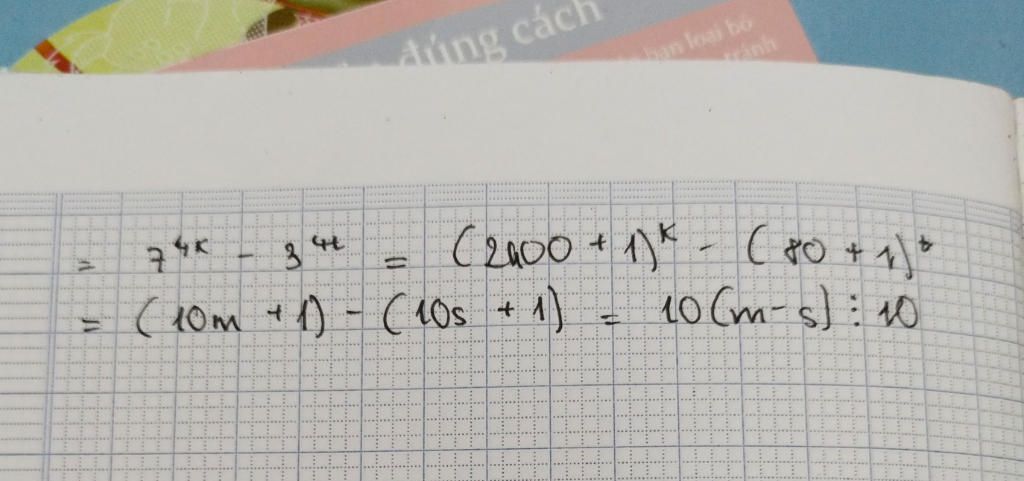 đúng cách
bạn loại bỏ
tránh
= 7^{4k} - 3^{4t} = (2400 + 1)^k - (80 + 1)^t
= (10m + 1) - (10s + 1) = 10(m - s) ⋮ 10